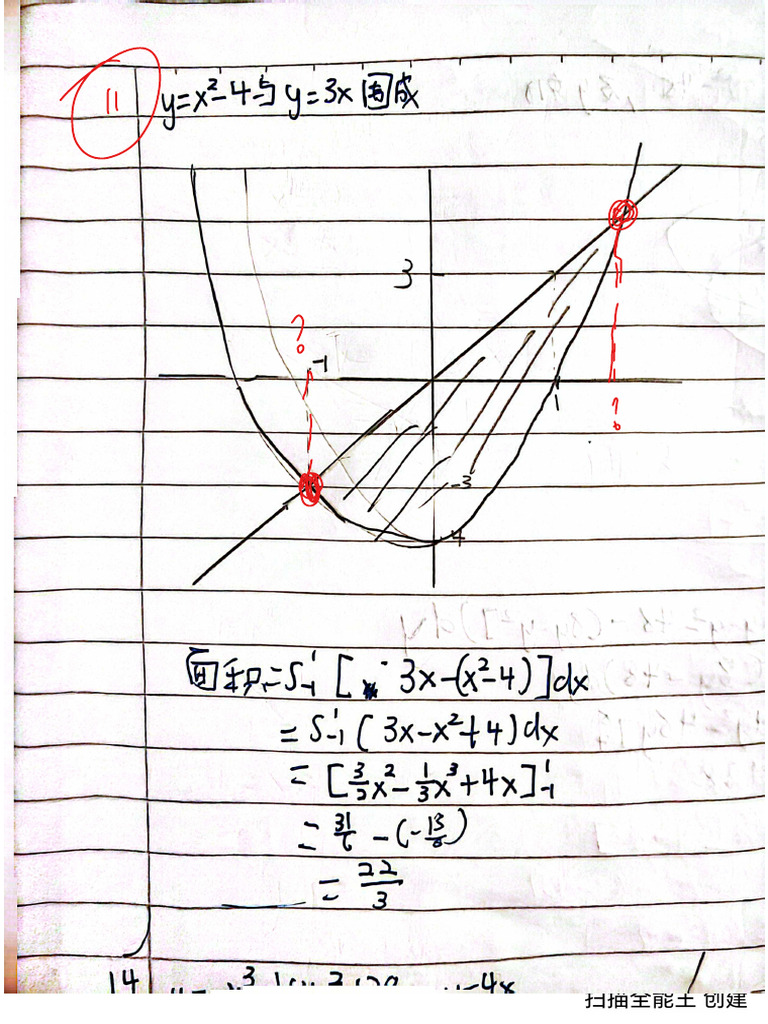 11
y=x²-4与y=3x围成
3
?
-1
1
?
-3
-4
面积=∫₋₁¹ [ 3x-(x²-4)]dx
=∫₋₁¹ (3x-x²+4)dx
=[3/2x²-1/3x³+4x]₋₁¹
=31/6-(-13/6)
=22/3
14
扫描全能王 创建